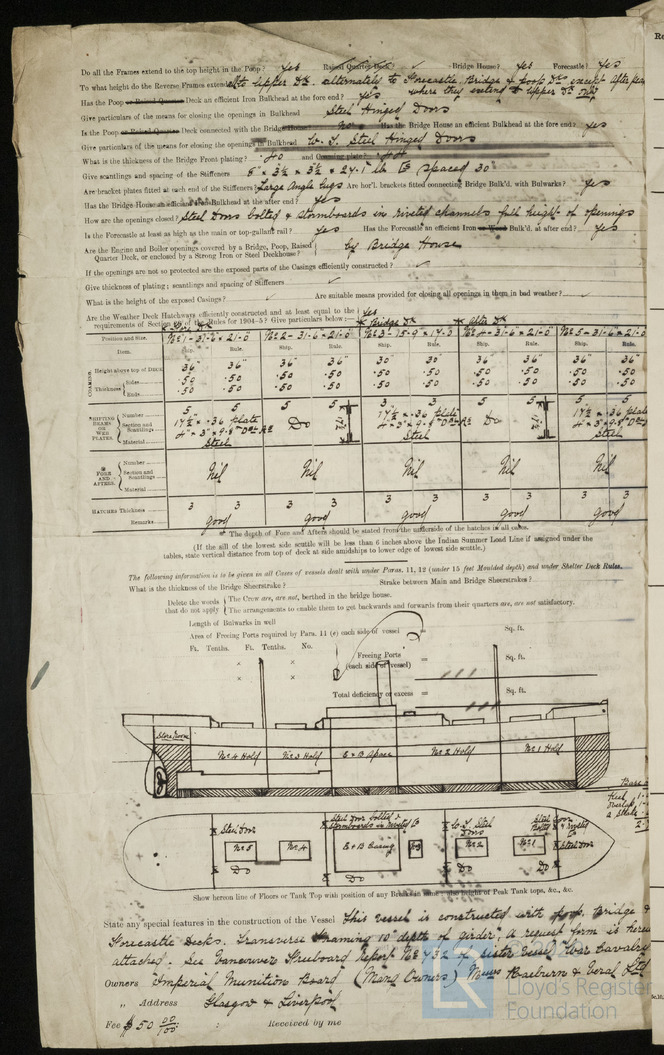 Do all the Frames extend to the top height in the Poop? Yes Raised Quarter Deck? ✓ Bridge House? Yes Forecastle? Yes
To what height do the Reverse Frames extend? to upper Dk. alternately to Forecastle, Bridge & poop Dks except after peak
where they extend to upper Dk only
Has the Poop or Raised Quarter Deck an efficient Iron Bulkhead at the fore end? Yes
Give particulars of the means for closing the openings in Bulkhead Steel Hinged Doors
Is the Poop or Raised Quarter Deck connected with the Bridge House? No Has the Bridge House an efficient Bulkhead at the fore end? Yes
Give particulars of the means for closing the openings in Bulkhead W. T. Steel Hinged Doors
What is the thickness of the Bridge Front plating? .40 and Coaming plate? .44
Give scantlings and spacing of the Stiffeners 6" × 3½ × 3½ × 24.1 lb spaced 30"
Are bracket plates fitted at each end of the Stiffeners? Large Angle Lugs Are hor'l. brackets fitted connecting Bridge Bulk'd. with Bulwarks? Yes
Has the Bridge House an efficient Iron Bulkhead at the after end? Yes
How are the openings closed? Steel Doors bolted & stormboards in riveted channels full height of openings
Is the Forecastle at least as high as the main or top-gallant rail? Yes Has the Forecastle an efficient Iron or Wood Bulk'd. at after end? Yes
Are the Engine and Boiler openings covered by a Bridge, Poop, Raised Quarter Deck, or enclosed by a Strong Iron or Steel Deckhouse? by Bridge House
If the openings are not so protected are the exposed parts of the Casings efficiently constructed? ✓
Give thickness of plating; scantlings and spacing of Stiffeners ✓
What is the height of the exposed Casings? ✓ Are suitable means provided for closing all openings in them in bad weather? ✓
Are the Weather Deck Hatchways efficiently constructed and at least equal to the requirements of Section of the Rules for 1904-5? Give particulars below:— Yes
Bridge Dk After Dk
Position and Size. No 1 - 31-6 × 21-0 No 2 - 31-6 × 21-0 No 3 - 15-9 × 14-3 No 4 - 31-6 × 21-0 No 5 - 31-6 × 21-0
Item. Ship. Rule. Ship. Rule. Ship. Rule. Ship. Rule. Ship. Rule.
COAMING Height above top of Deck 36" 36" 36" 36" 30" 30" 36" 36" 36" 36"
Thickness Sides .50 .50 .50 .50 .50 .50 .50 .50 .50 .50
Ends .50 .50 .50 .50 .50 .50 .50 .50 .50 .50
SHIFTING BEAMS OR WEB PLATES. Number 5 5 5 5 3 3 5 5 5 5
Section and Scantlings 17½ × .36 plate Do 17½ 17½ × .36 plate Do 17½ 17½ × .36 plate
Material Steel Steel Steel
FORE AND AFTERS. Number
Section and Scantlings Nil Nil Nil Nil Nil
Material
HATCHES Thickness 3 3 3 3 3 3 3 3 3 3
Remarks. good good good good good
The depth of Fore and Afters should be stated from the underside of the hatches in all cases.
(If the sill of the lowest side scuttle will be less than 6 inches above the Indian Summer Load Line if assigned under the
tables, state vertical distance from top of deck at side amidships to lower edge of lowest side scuttle.)
The following information is to be given in all Cases of vessels dealt with under Paras. 11, 12 (under 15 feet Moulded depth) and under Shelter Deck Rules.
What is the thickness of the Bridge Sheerstrake? Strake between Main and Bridge Sheerstrakes?
Delete the words that do not apply. The Crew are, are not, berthed in the bridge house.
The arrangements to enable them to get backwards and forwards from their quarters are, are not satisfactory.
Length of Bulwarks in well
Area of Freeing Ports required by Para. 11 (e) each side of vessel = Sq. ft.
Ft. Tenths. Ft. Tenths. No.
× × Freeing Ports (each side of vessel) = Sq. ft.
× ×
Total deficiency or excess = Sq. ft.
Store Room
No 4 Hold No 3 Hold E & B Space No 2 Hold No 1 Hold
Steel Door Steel Doors bolted & Stormboards in riveted W. T. Steel Doors Steel Door Bolted Steel Door
No 5 No 4 E & B Casing No 3 No 2 No 1
Do Do Do Do
Show hereon line of Floors or Tank Top with position of any Breaks in same; also height of Peak Tank tops, &c., &c.
State any special features in the construction of the Vessel This vessel is constructed with poop, Bridge &
Forecastle Decks. Transverse Framing 10" depth of girder, A request form is here
attached. See Vancouver Freeboard Report No 432 of sister vessel "War Cavalry
Owners Imperial Munition Board (Mang Owners) Messrs Raeburn & Veral Ltd
„ Address Glasgow & Liverpool
Fee $ 50 00/100 : Received by me
Lloyd's Register
Foundation